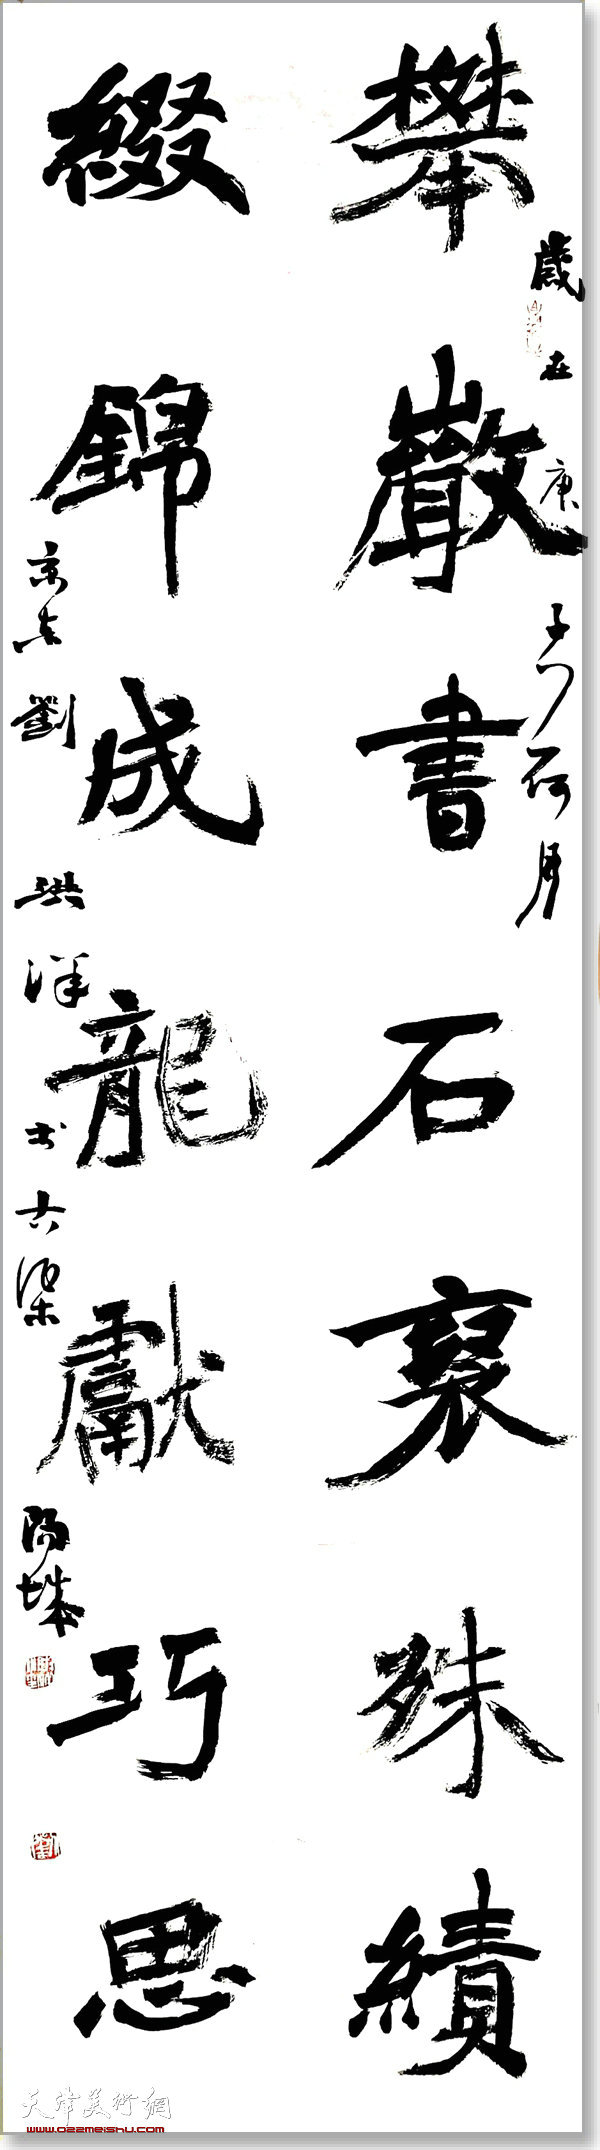 歲在庚子荷月
攀巖書石褒殊績
綴錦成龍獻巧思
京东劉洪洋书古渠陽城
天津美術網
www.022meishu.com